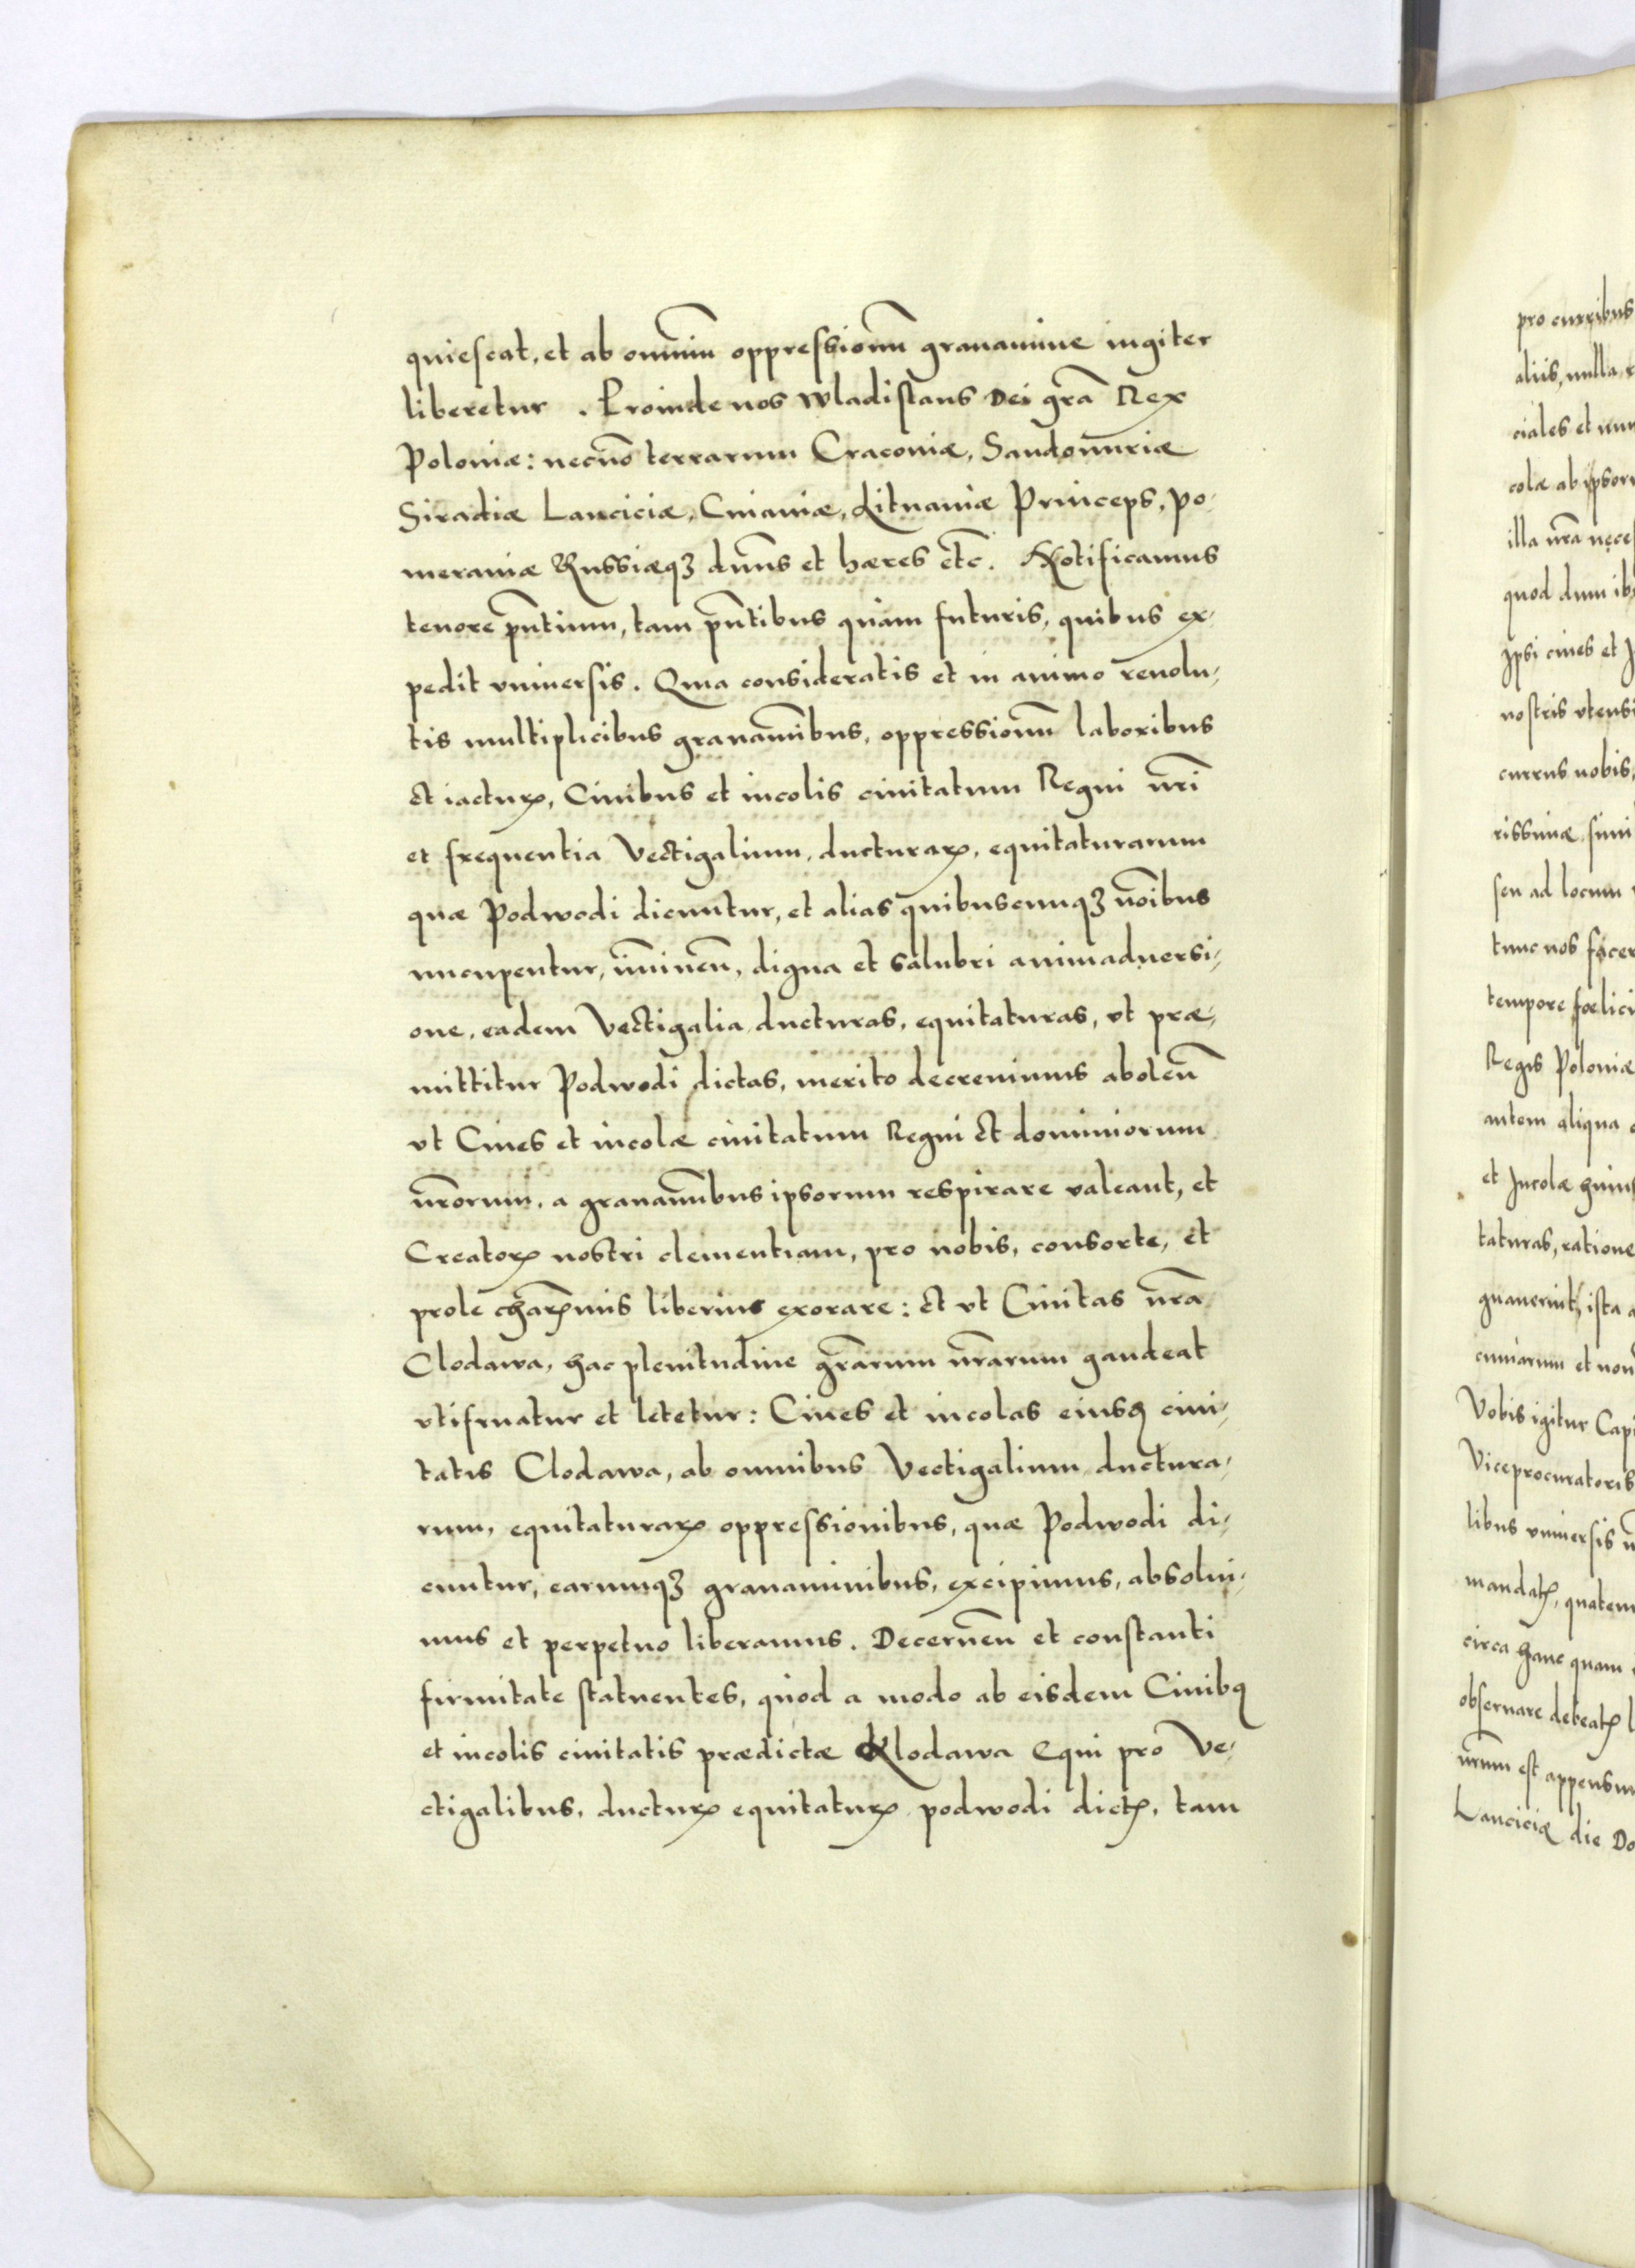 quiescat, et ab omniũ oppressionũ grauamine iugiter
liberetur. Proinde nos Wladislaus Dei gr̃a Rex
Poloniæ: necnõ terrarum Cracouiæ, Sandomiriæ
Siradiæ Lanciciæ, Cuiauiæ, Lituaniæ Princeps, Po-
meraniæ Russiæqꝫ dñus et hæres etc̃. Notificamus
tenore pñtium, tam pñtibus quàm futuris, quibus ex-
pedit vniuersis. Quia consideratis et in animo reuolu-
tis multiplicibus grauamĩbus, oppressionũ laboribus
et iacturꝭ, Ciuibus et incolis ciuitatum Regni nr̃i
et frequentia Vectigalium, ducturaꝝ, equitaturarum
quæ Podwodi dicuntur, et alias quibuscumqꝫ nõibus
nuncupentur, im̃inen̄, digna et salubri animaduersi-
one, eadem Vectigalia, ducturas, equitaturas, vt præ-
mittitur Podwodi dictas, merito decreuimus abolen̄
vt Ciues et incolæ ciuitatum Regni et dominiorum
nr̃orum, a grauamĩbus ipsorum respirare valeant, et
Creatorꝭ nostri clementiam, pro nobis, consorte, et
prole charꝭimis liberius exorare: et vt Ciuitas nr̃a
Clodawa, hac plenitudine gr̃arum nr̃arum gaudeat
vtifruatur et letetur: Ciues et incolas eiusꝗ ciui-
tatis Clodawa, ab omnibus Vectigalium ductura-
rum, equitaturaꝝ oppressionibus, quæ Podwodi di-
cuntur, earumqꝫ grauaminibus, excipimus, absolui-
mus et perpetuo liberamus. Decernen̄ et constanti
firmitate statuentes, quòd a modo ab eisdem Ciuibꝗ
et incolis ciuitatis prædictæ Klodawa Equi pro Ve-
ctigalibus, ducturꝭ equitaturꝭ podwodi dictꝭ, tam
pro curribus
aliis, nulla
ciales et
colæ ab ipsor
illa nr̃a neces
quod dum ib
Ipsi ciues et
nostris vtensi
currus nobis,
rissimæ
seu ad locum
tunc nos
tempore fœlici
Regis Poloniæ
autem aliqua
et Incolæ huius
taturas, ratione
guauerint, ista
et
Vobis igitur Capi
Viceprocuratoris
libus vniuersis
mandatꝭ, quatenu
circa hanc quam
obseruare debeatꝭ
nr̃um est appensum
Lanciciæ die Do